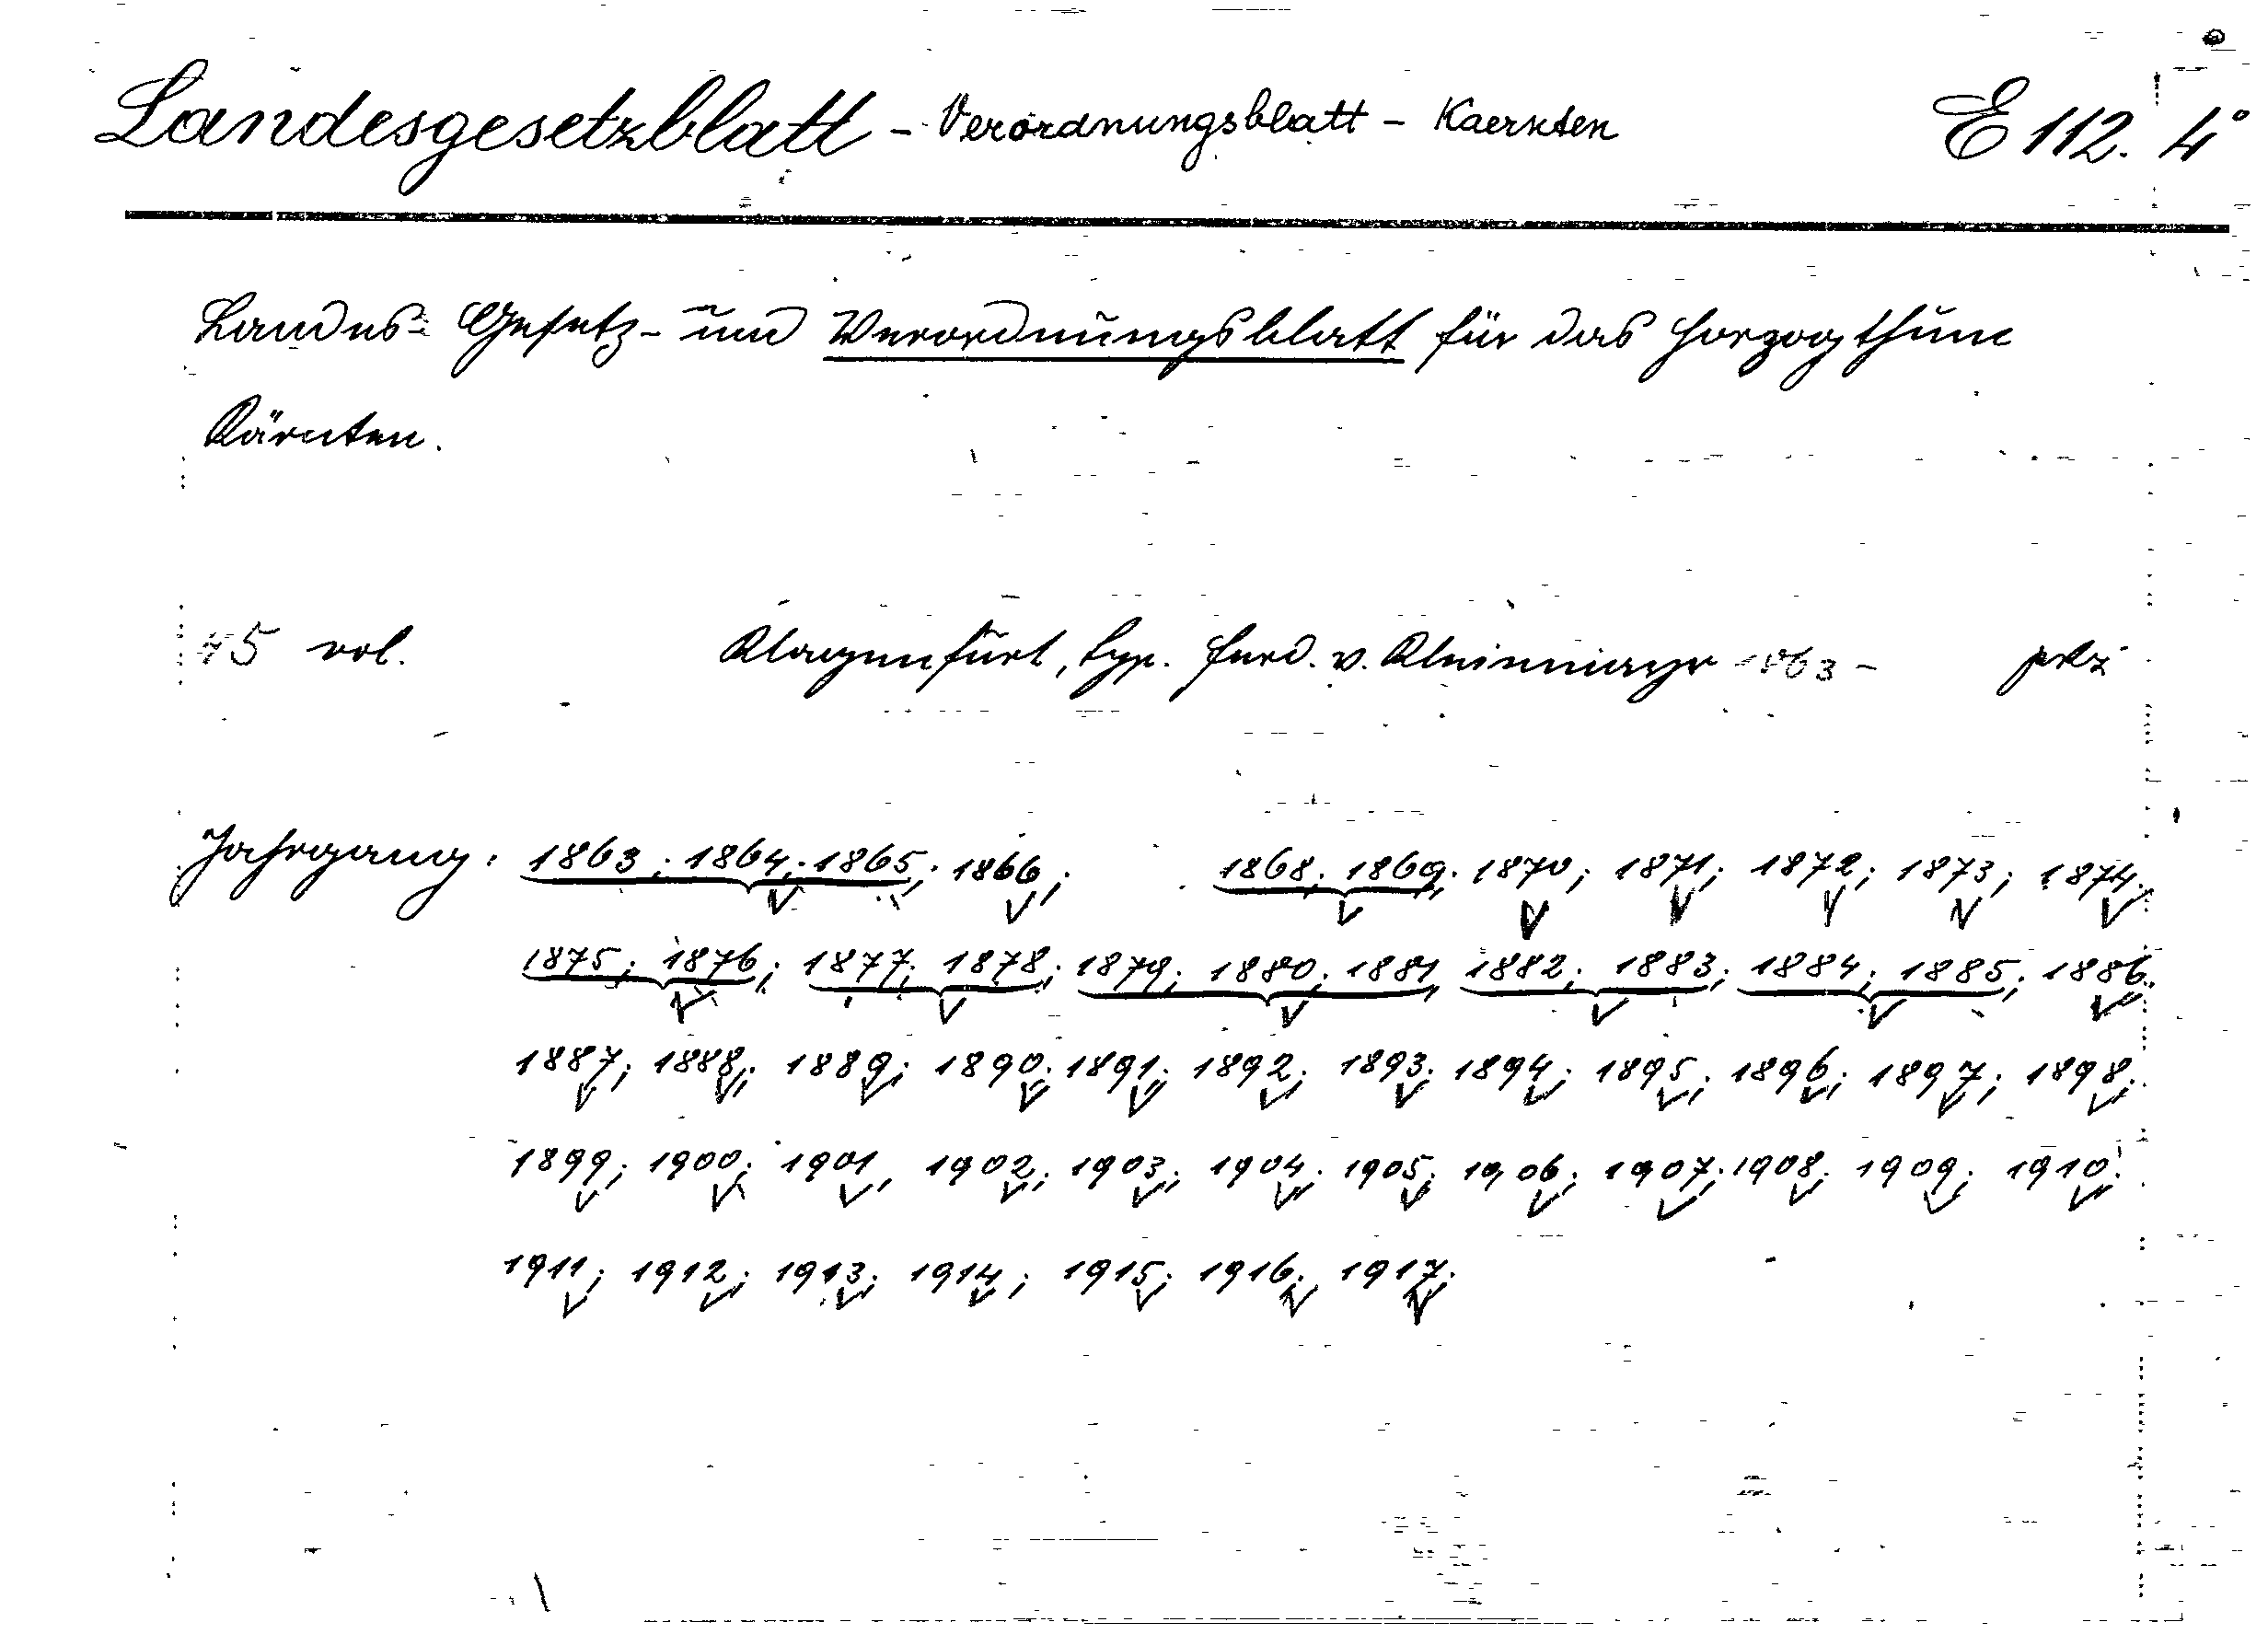 Landesgesetzblatt - Verordnungsblatt - Kaernten E 112. 4°
Landes- Gesetz- und Verordnungsblatt für das Herzogthum
Kärnten.
45 vol. Klagenfurt, typ. Ferd. v. Kleinmayr 1863 -
Jahrgang: 1863; 1864; 1865; 1866; 1868; 1869; 1870; 1871; 1872; 1873; 1874;
1875; 1876; 1877; 1878; 1879; 1880; 1881, 1882; 1883; 1884; 1885; 1886;
1887; 1888; 1889; 1890; 1891; 1892; 1893; 1894; 1895; 1896; 1897; 1898;
1899; 1900; 1901, 1902; 1903; 1904; 1905; 1906; 1907; 1908; 1909; 1910;
1911; 1912; 1913; 1914; 1915; 1916; 1917;